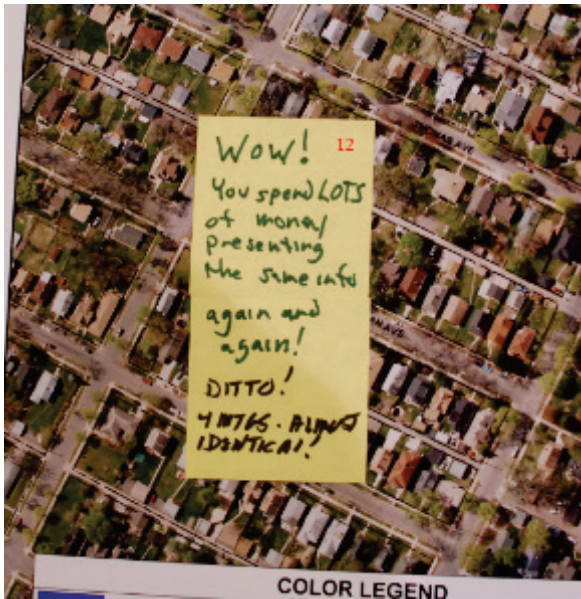 WOW! 12
You spend LOTS
of money
presenting
the same info
again and
again!
DITTO!
4 MTGS. ALMOST
IDENTICAL!
AVE
AVE
COLOR LEGEND